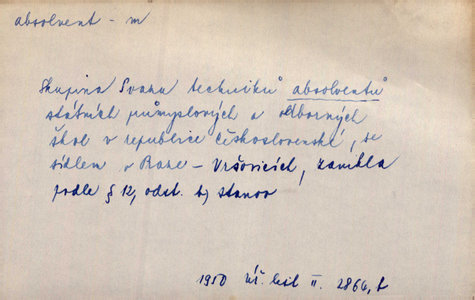 absolvent - m
Skupina Svazu techniků absolventů
státních průmyslových a odborných
škol v republice Československé, se
sídlem v Praze - Vršovicích, zanikla
podle § 12, odst. b) stanov
1950 Úř. list II. 2866,